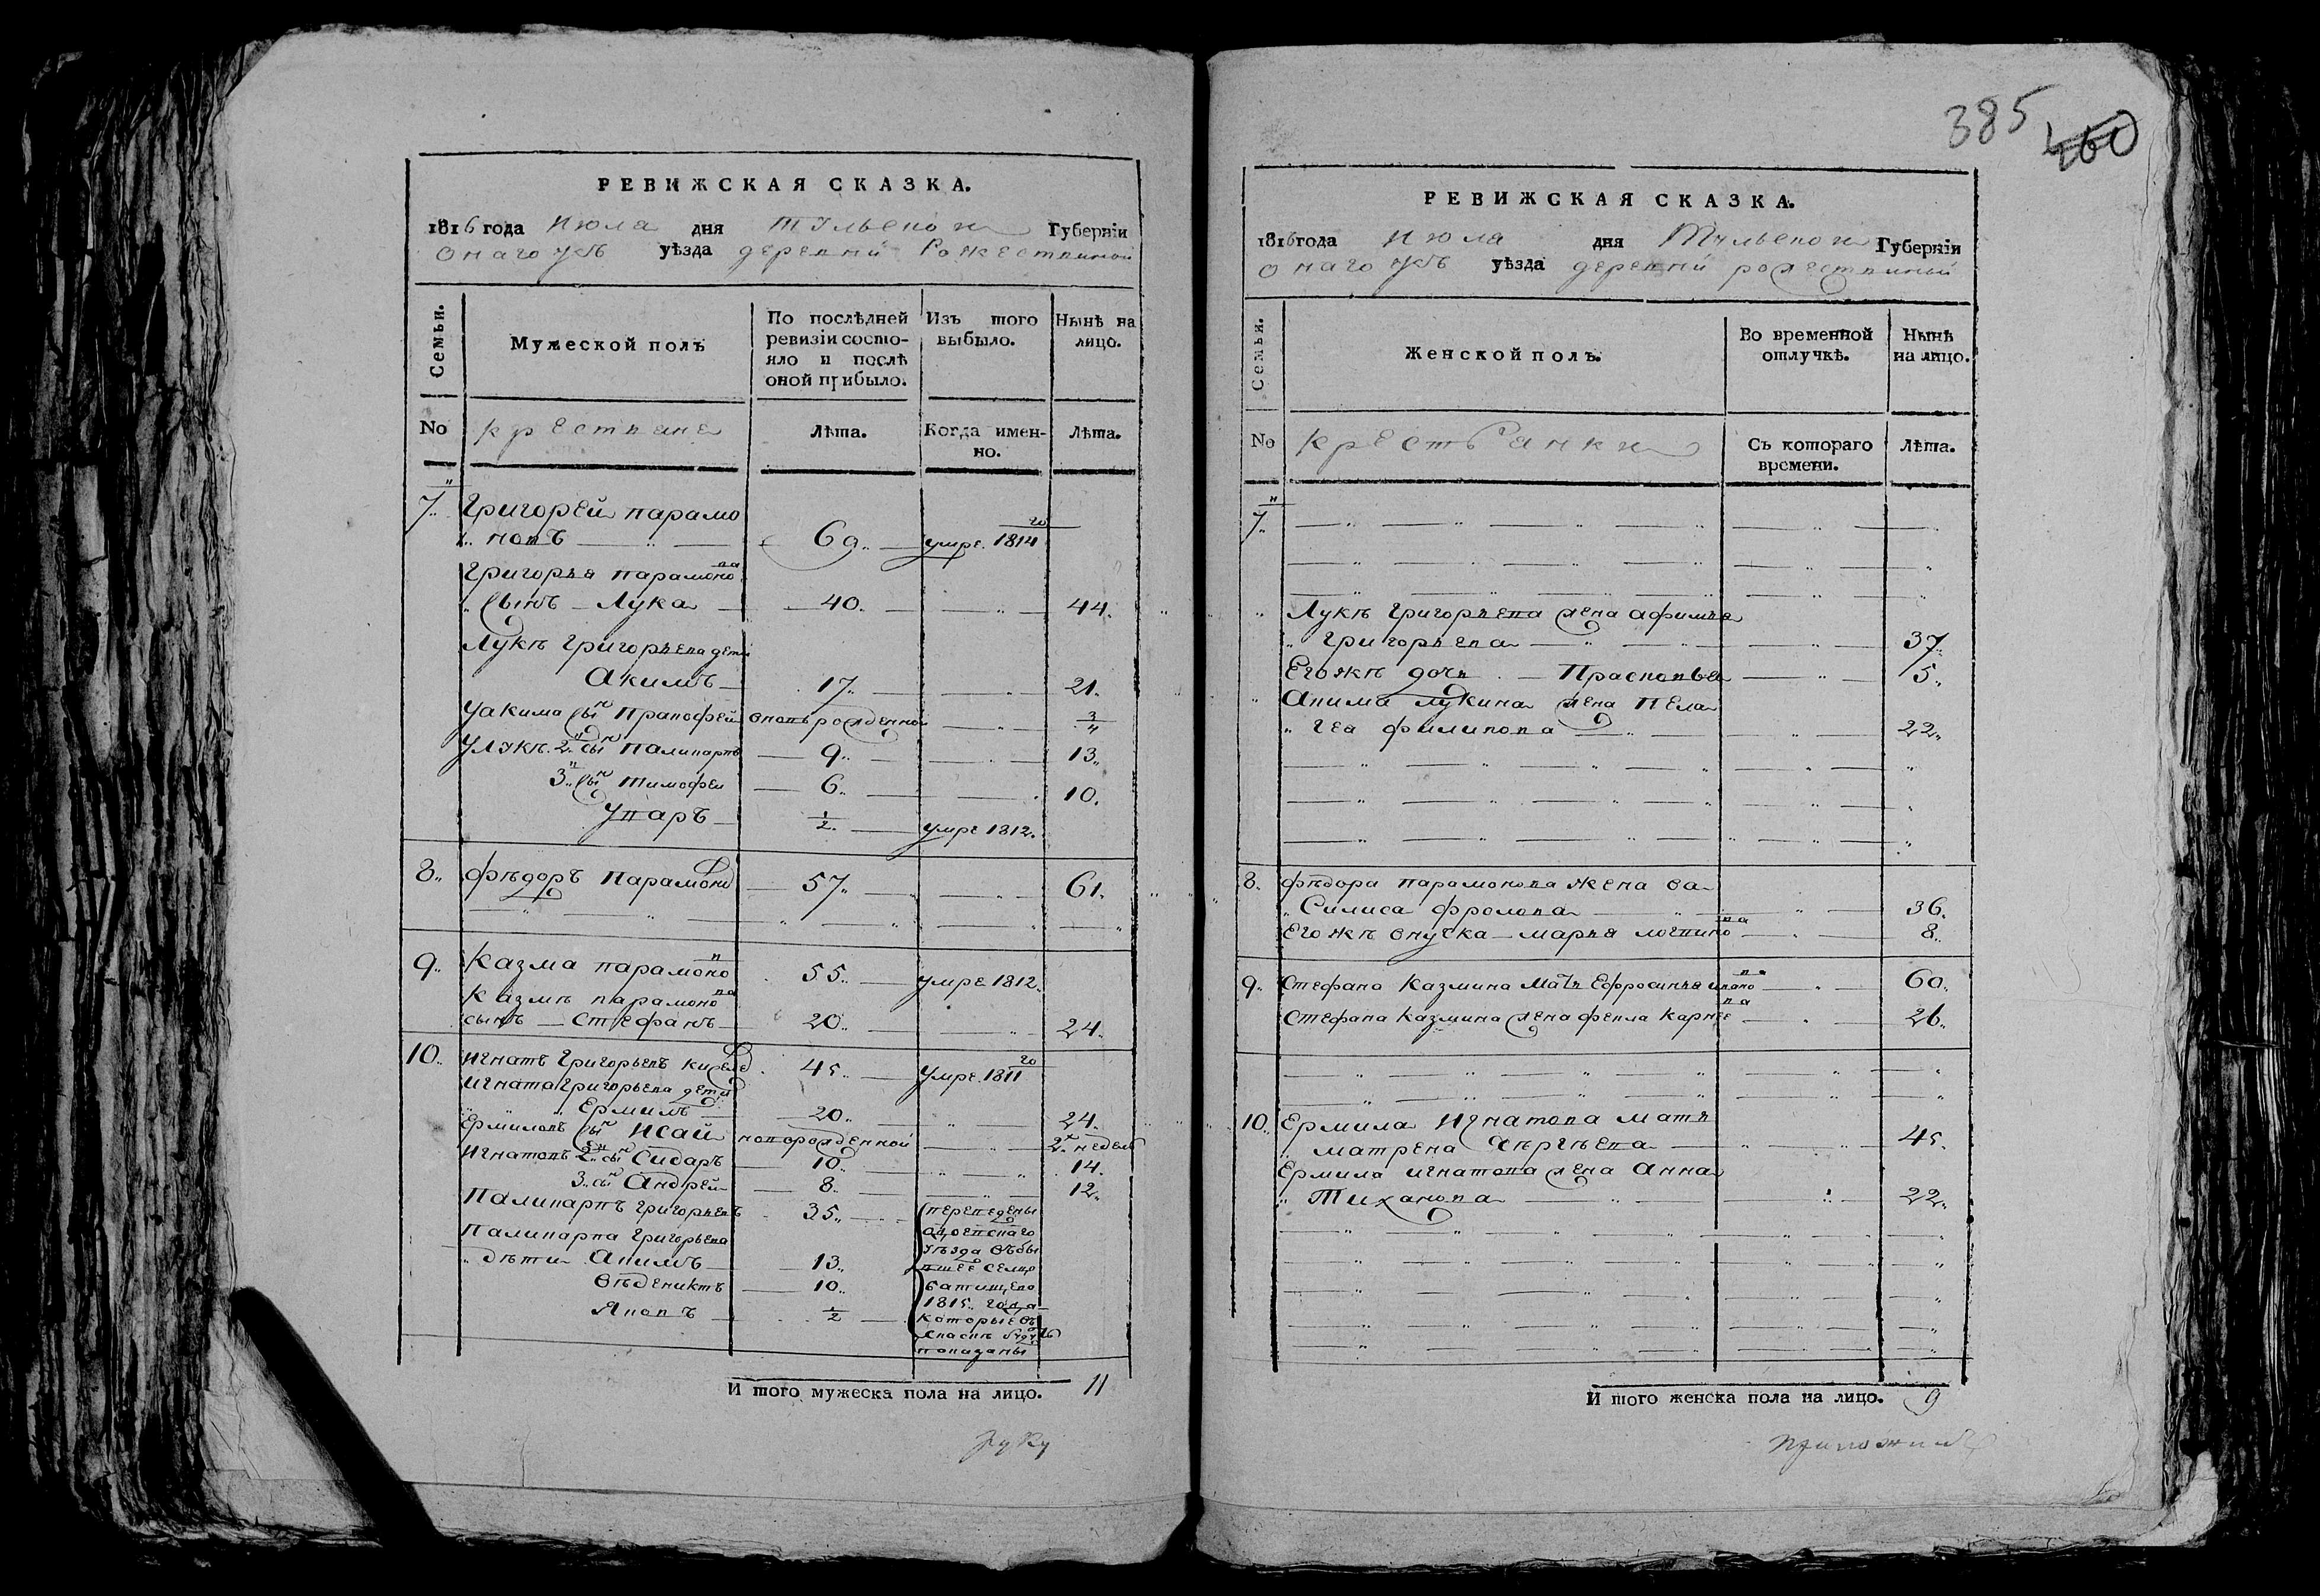 385
460
РЕВИЖСКАЯ СКАЗКА.
1816 года июла дня тульской Губерніи
онаго уѣ уѣзда деревни Рожествиной
Семьи.
Мужеской полъ
По послѣдней ревизіи состо-
яло и послѣ
оной прибыло.
Изъ того
выбыло.
Нынѣ на
лицо.
No
крестьяне
лѣта.
Когда имен-
но.
лѣта.
7.. Григорей парамо
новъ 69.. умре. 1814 го
Григорья парамонова
сынъ Лука 40. 44.
Лукѣ Григорьева дети
Акимъ 17.. 21.
Уакима сынъ Пракофей вновьрожденной 3/4
Улуки. 2й сынъ Паликарпъ 9.. 13..
3й сынъ тимофеи 6.. 10.
Уваръ 1/2. умре 1812.
8.. Фѣдоръ Парамонов 57.. 61.
9.. Казма парамонов 55.. умре 1812.
Казмѣ парамонова
сынъ Стефанъ 20.. 24.
10.. Игнатъ Григорьевъ 45.. умре. 1811 го
Игната Григорьева дети
Ермилъ 20.. 24.
Ермиловъ сынъ Исай новорожденной 2х недель
Игнатовъ 2й сынъ Сидаръ 10.. 14.
3й сынъ Андрей 8.. 12..
Паликарпъ Григорьевъ 35..
Паликарпа Григорьева
дѣти Акимъ 13..
Вѣдениктъ 10..
Яковъ 1/2
переведены
Одоевскаго
уѣзда
селцо
1815.. года
которые
поданы
И того мужеска пола на лицо. 11
руку
РЕВИЖСКАЯ СКАЗКА.
1816 года июла дня Тульской Губерніи
онаго уѣ уѣзда деревни рожествиной
Семьи.
Женской полъ.
Во временной
отлучкѣ.
Нынѣ
на лицо.
No
крестьянки
Съ котораго
времени.
лѣта.
7..
Лукѣ Григорьева жена афимья
Григорьева 37..
Егожѣ дочь Прасковья 5..
Акима лукина жена Пела
геа филипова 22..
8. Фѣдора парамонова жена ва
Силиса фролова 36.
Егожѣ внучка марья логинова 8..
9.. Стефана Казмина мать Ефросинья ивановна 60.
Стефана Казмина жена фекла Карнеева 26..
10.. Ермила Игнатова мать
матрена 45.
Ермила игнатова жена Анна
Тиханова 22..
И того женска пола на лицо. 9
приложилъ